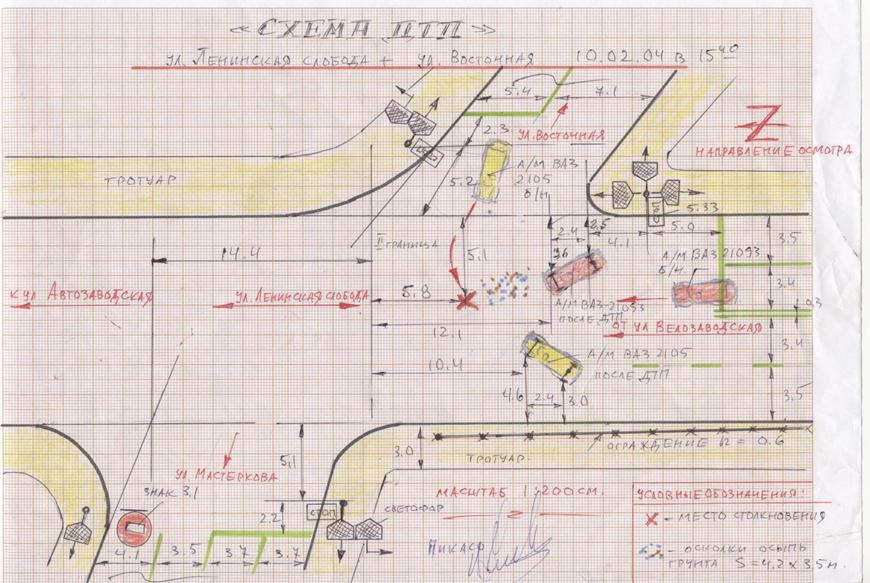 «СХЕМА ДТП»
УЛ. ЛЕНИНСКАЯ СЛОБОДА + УЛ. ВОСТОЧНАЯ 10.02.04 В 15 40
5.4
7.1
2.3
УЛ. ВОСТОЧНАЯ
НАПРАВЛЕНИЕ ОСМОТРА
ТРОТУАР
СТОП
5.2
А/М ВАЗ
2105
б/н
5.33
СТОП
II ГРАНИЦА
5.1
2.5
2.4
4.1
5.0
3.5
14.4
А/М ВАЗ 21093
б/н.
К УЛ АВТОЗАВОДСКАЯ
УЛ. ЛЕНИНСКАЯ СЛОБОДА
5.8
3.4
А/М ВАЗ-21093
ПОСЛЕ ДТП
0.3
12.1
ОТ УЛ ВЕЛОЗАВОДСКАЯ
3.4
А/М ВАЗ 2105
ПОСЛЕ ДТП
10.4
4.6
2.4
3.0
3.5
5.1
3.0
ОГРАЖДЕНИЕ h = 0.6
ТРОТУАР
УЛ. МАСТЕРКОВА
ЗНАК 3.1
МАСШТАБ 1:200СМ.
УСЛОВНЫЕ ОБОЗНАЧЕНИЯ:
2.2
СТОП
СВЕТОФАР
- МЕСТО СТОЛКНОВЕНИЯ
4.1
3.5
3.7
3.7
- ОСКОЛКИ ОСЫПЬ
ГРУНТА S=4,2 x 3.5м.